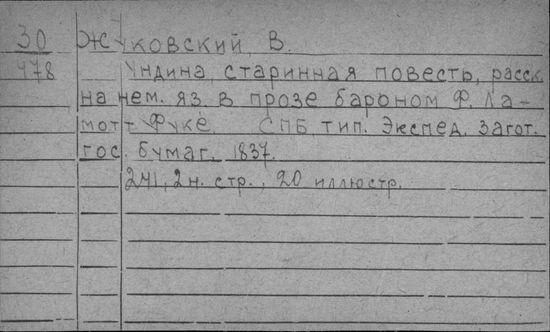 30 Жуковский В.
478 Ундина, старинная повесть, расск.
на нем. яз. в прозе бароном Ф. Ла-
мотт Фуке. СПБ тип. Экспед. загот.
гос. бумаг. 1837.
241, 2 н. стр., 20 иллюстр.